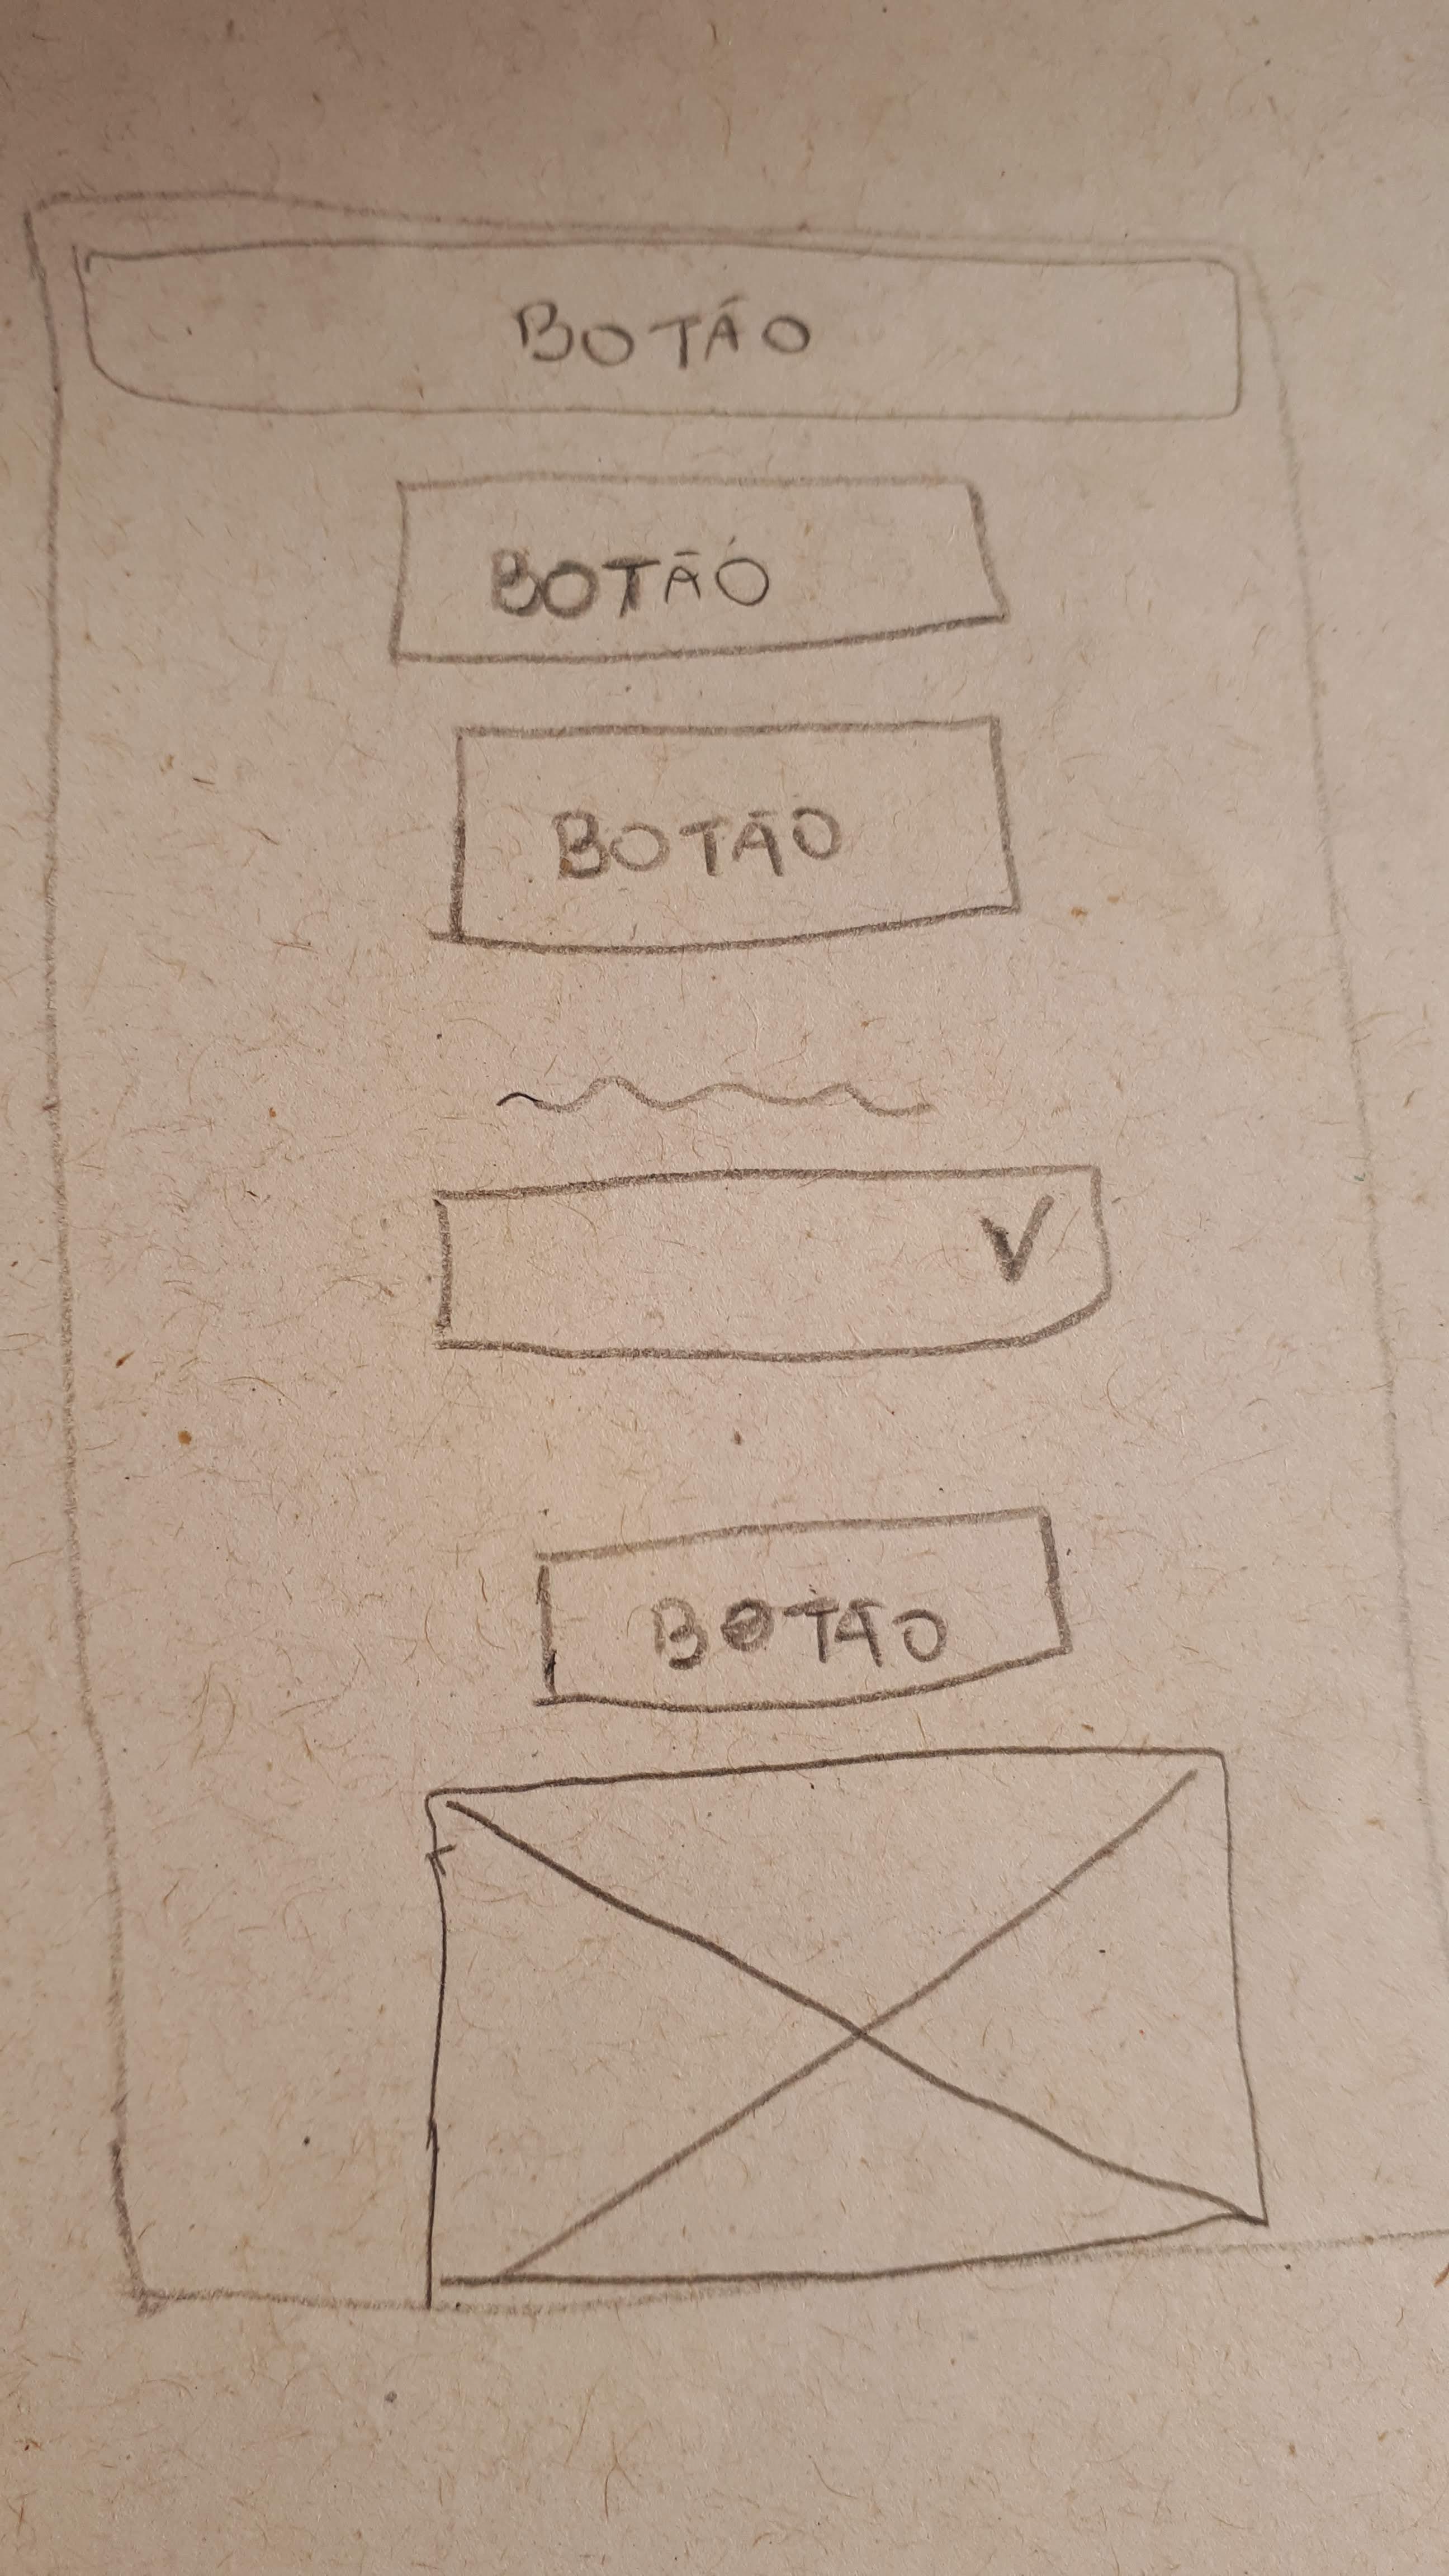 BOTÃO
BOTÃO
BOTÃO
BOTÃO